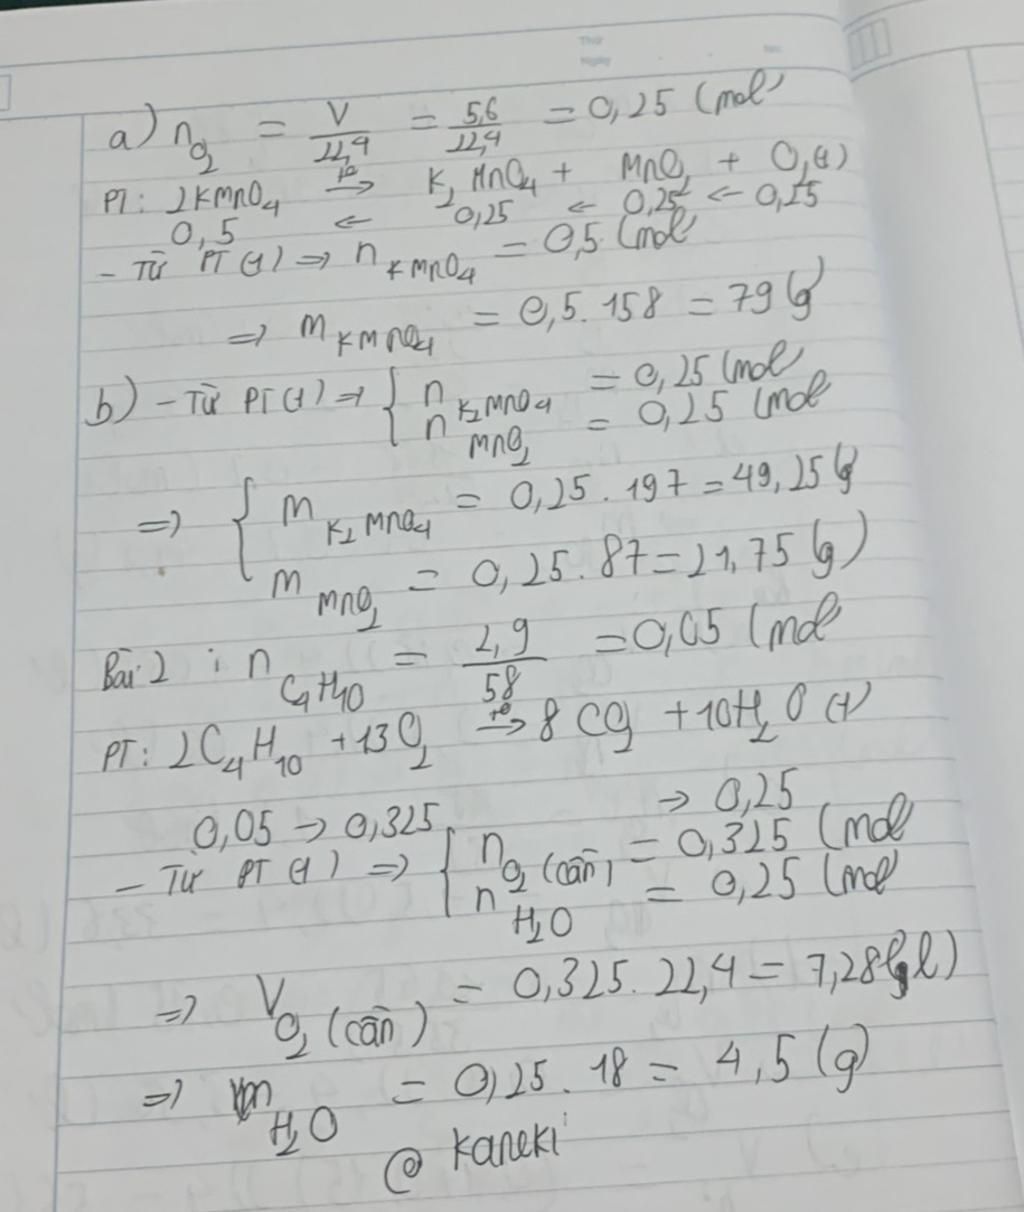 Thứ
Ngày
No.
a) nO2 = V/22,4 = 5,6/22,4 = 0,25 (mol)
PT: 2KMnO4 t°→ K2MnO4 + MnO2 + O2 (1)
0,5 ← 0,25 ← 0,25 ← 0,25
- Từ PT (1) => nKMnO4 = 0,5 (mol)
=> mKMnO4 = 0,5 . 158 = 79 (g)
b) - Từ PT (1) => { nK2MnO4 = 0,25 (mol)
nMnO2 = 0,25 (mol)
=> { mK2MnO4 = 0,25 . 197 = 49,25 (g)
mMnO2 = 0,25 . 87 = 21,75 (g)
Bài 2 : nC4H10 = 2,9/58 = 0,05 (mol)
PT: 2C4H10 + 13O2 t°→ 8CO2 + 10H2O (1)
0,05 → 0,325 → 0,25
- Từ PT (1) => { nO2 (cần) = 0,325 (mol)
nH2O = 0,25 (mol)
=> VO2 (cần) = 0,325 . 22,4 = 7,28 (l)
=> mH2O = 0,25 . 18 = 4,5 (g)
@ Kaneki